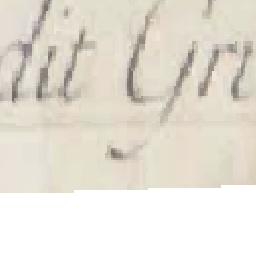 dit Gri